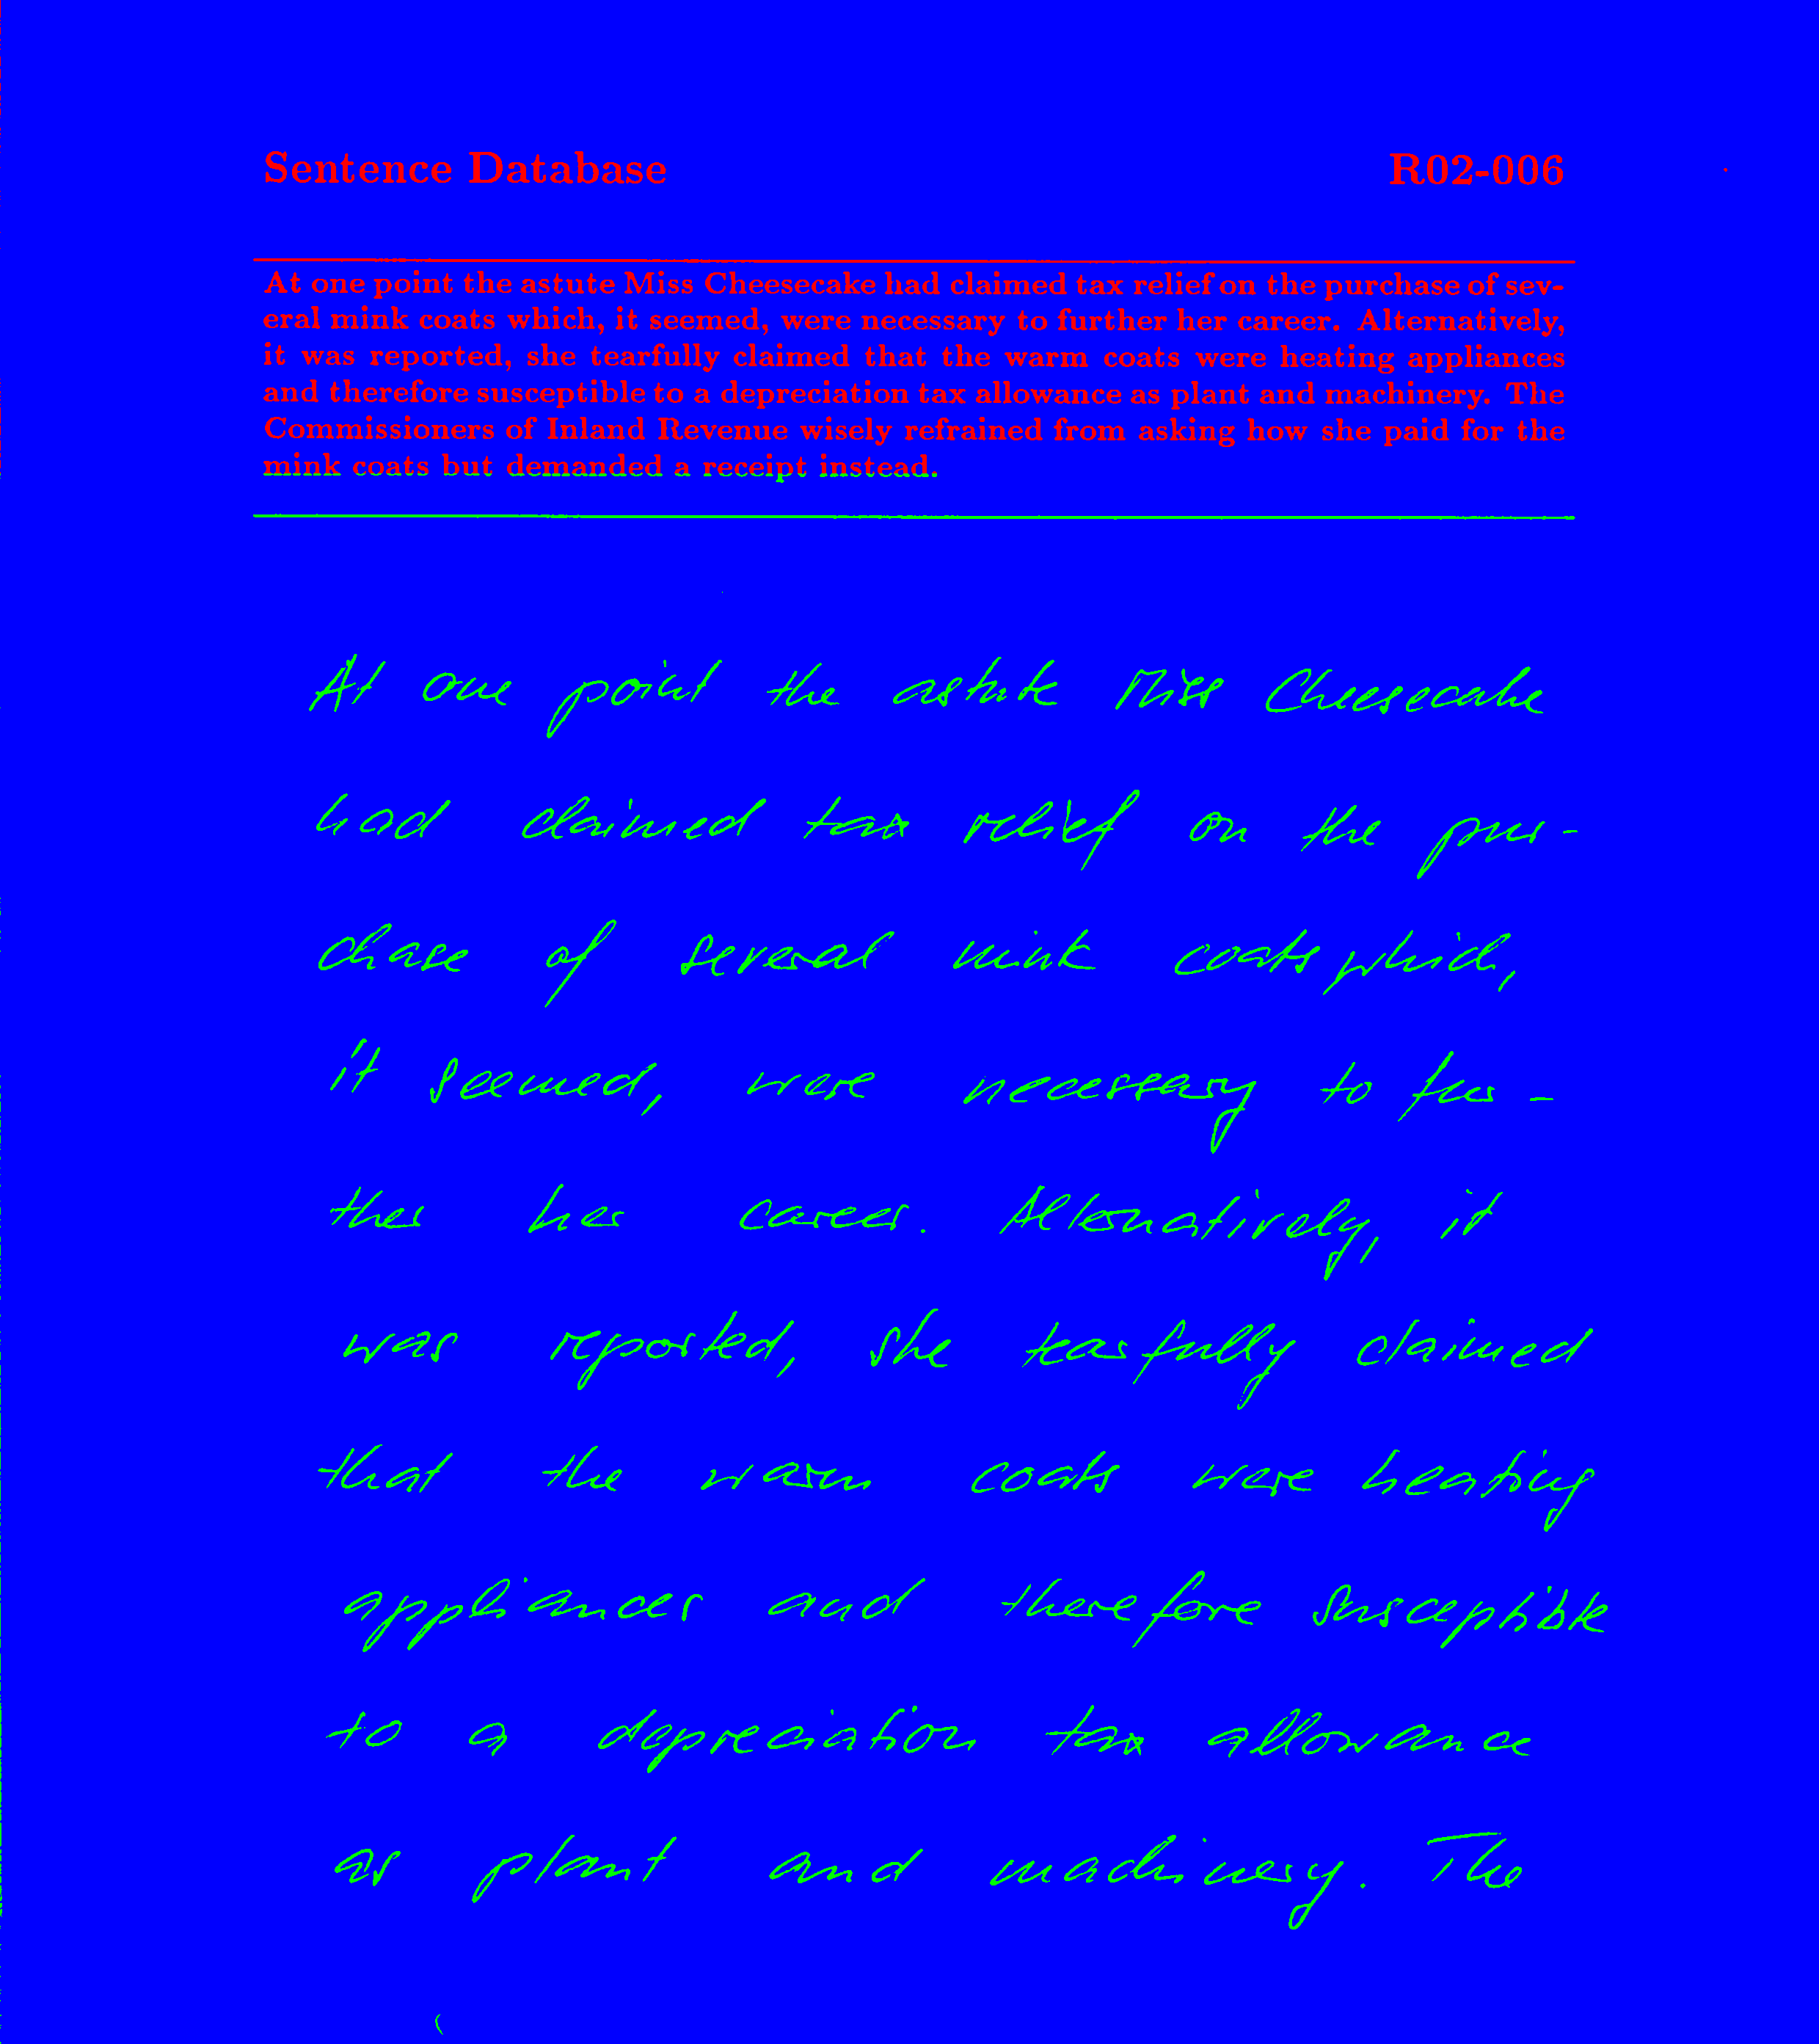 Sentence Database R02-006
At one point the astute Miss Cheesecake had claimed tax relief on the purchase of sev-
eral mink coats which, it seemed, were necessary to further her career. Alternatively,
it was reported, she tearfully claimed that the warm coats were heating appliances
and therefore susceptible to a depreciation tax allowance as plant and machinery. The
Commissioners of Inland Revenue wisely refrained from asking how she paid for the
mink coats but demanded a receipt instead.
At one point the astute Miss Cheesecake
had claimed tax relief on the pur-
chase of several mink coats which,
it seemed, were necessary to fur-
ther her career. Alternatively, it
was reported, she tearfully claimed
that the warm coats were heating
appliances and therefore susceptible
to a depreciation tax allowance
as plant and machinery. The